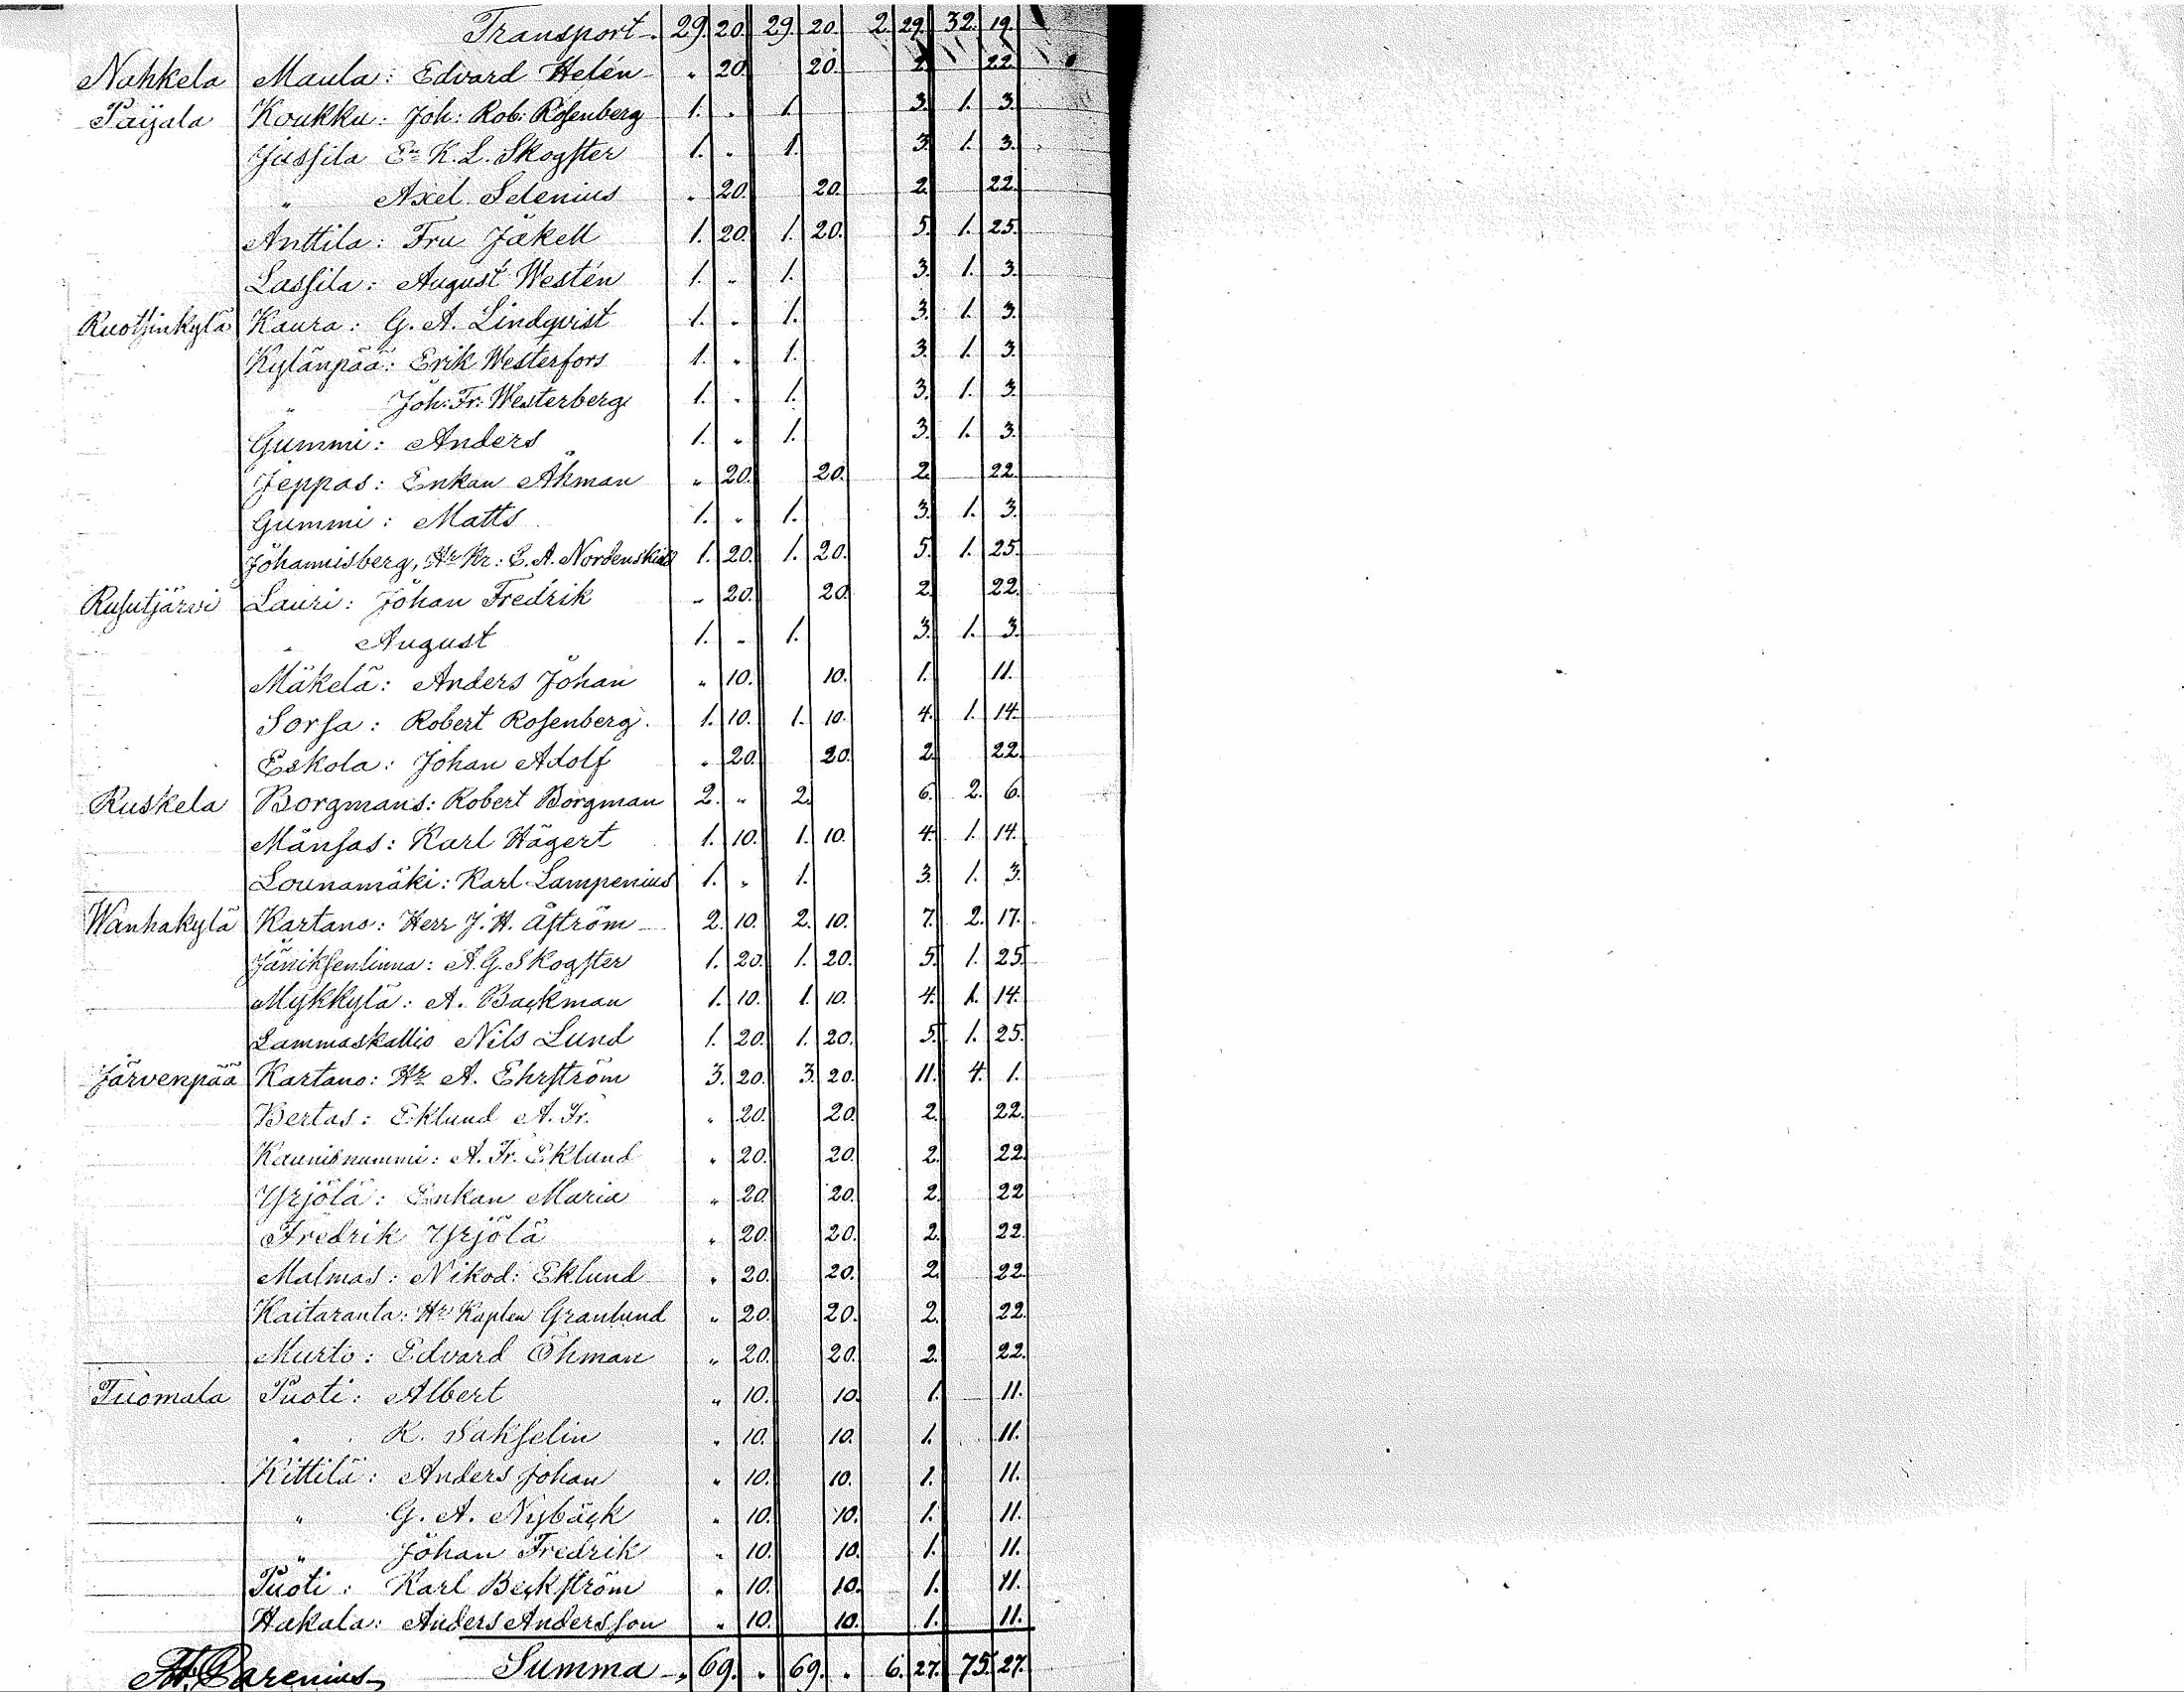 Transport. 29. 20. 29. 20. 2. 29. 32. 19.
Nahkela Maula: Edvard Helén " 20. 20. 2. 22.
Paijala Koukku: Joh: Rob: Rosenberg 1. " 1. 3. 1. 3.
Jussila En K. L. Skogster 1. " 1. 3. 1. 3.
" Axel Selenius " 20. 20. 2. 22.
Anttila: Fru Jäkell 1. 20. 1. 20. 5. 1. 25.
Lassila: August Westén 1. " 1. 3. 1. 3.
Ruotsinkylä Kaura: G. A. Lindqvist 1. " 1. 3. 1. 3.
Kylänpää: Erik Westerfors 1. " 1. 3. 1. 3.
" Joh: Fr: Westerberg 1. " 1. 3. 1. 3.
Gummi: Anders 1. " 1. 3. 1. 3.
Jeppas: Enkan Åhman " 20. 20. 2. 22.
Gummi: Matts 1. " 1. 3. 1. 3.
Johannisberg, Hr Kr: E. A. Nordenskiöld 1. 20. 1. 20. 5. 1. 25.
Rusutjärvi Lauri: Johan Fredrik " 20. 20. 2. 22.
" August 1. " 1. 3. 1. 3.
Mäkelä: Anders Johan " 10. 10. 1. 11.
Sorsa: Robert Rosenberg. 1. 10. 1. 10. 4. 1. 14.
Eskola: Johan Adolf " 20. 20. 2. 22.
Ruskela Borgmans: Robert Borgman 2. " 2. 6. 2. 6.
Månsas: Karl Hägert 1. 10. 1. 10. 4. 1. 14.
Lounamäki: Karl Lampenius 1. " 1. 3. 1. 3.
Wanhakylä Kartano: Herr J. H. Åström 2. 10. 2. 10. 7. 2. 17.
Jäniksenlinna: A. G. Skogster 1. 20. 1. 20. 5. 1. 25.
Mykkylä: A. Backman 1. 10. 1. 10. 4. 1. 14.
Lammaskallio Nils Lund 1. 20. 1. 20. 5. 1. 25.
Järvenpää Kartano: Hr A. Ehrström 3. 20. 3. 20. 11. 4. 1.
Bertas: Eklund A. Fr. " 20. 20. 2. 22.
Kaunisnummi: A. Fr. Eklund " 20. 20. 2. 22.
Yrjölä: Enkan Maria " 20. 20. 2. 22
Fredrik Yrjölä " 20. 20. 2. 22.
Malmas: Nikod: Eklund " 20. 20. 2. 22.
Kaitaranta: Hr Kapten Granlund " 20. 20. 2. 22.
Murto: Edvard Öhman " 20. 20. 2. 22.
Tuomala Puoti: Albert " 10. 10. 1. 11.
" K. Sakselin " 10. 10. 1. 11.
Kittilä: Anders Johan " 10. 10. 1. 11.
" G. A. Nybäck " 10. 10. 1. 11.
" Johan Fredrik " 10. 10. 1. 11.
Puoti: Karl Beckström " 10. 10. 1. 11.
Hakala: Anders Andersson " 10. 10. 1. 11.
Summa " 69. " 69. " 6. 27. 75. 27.